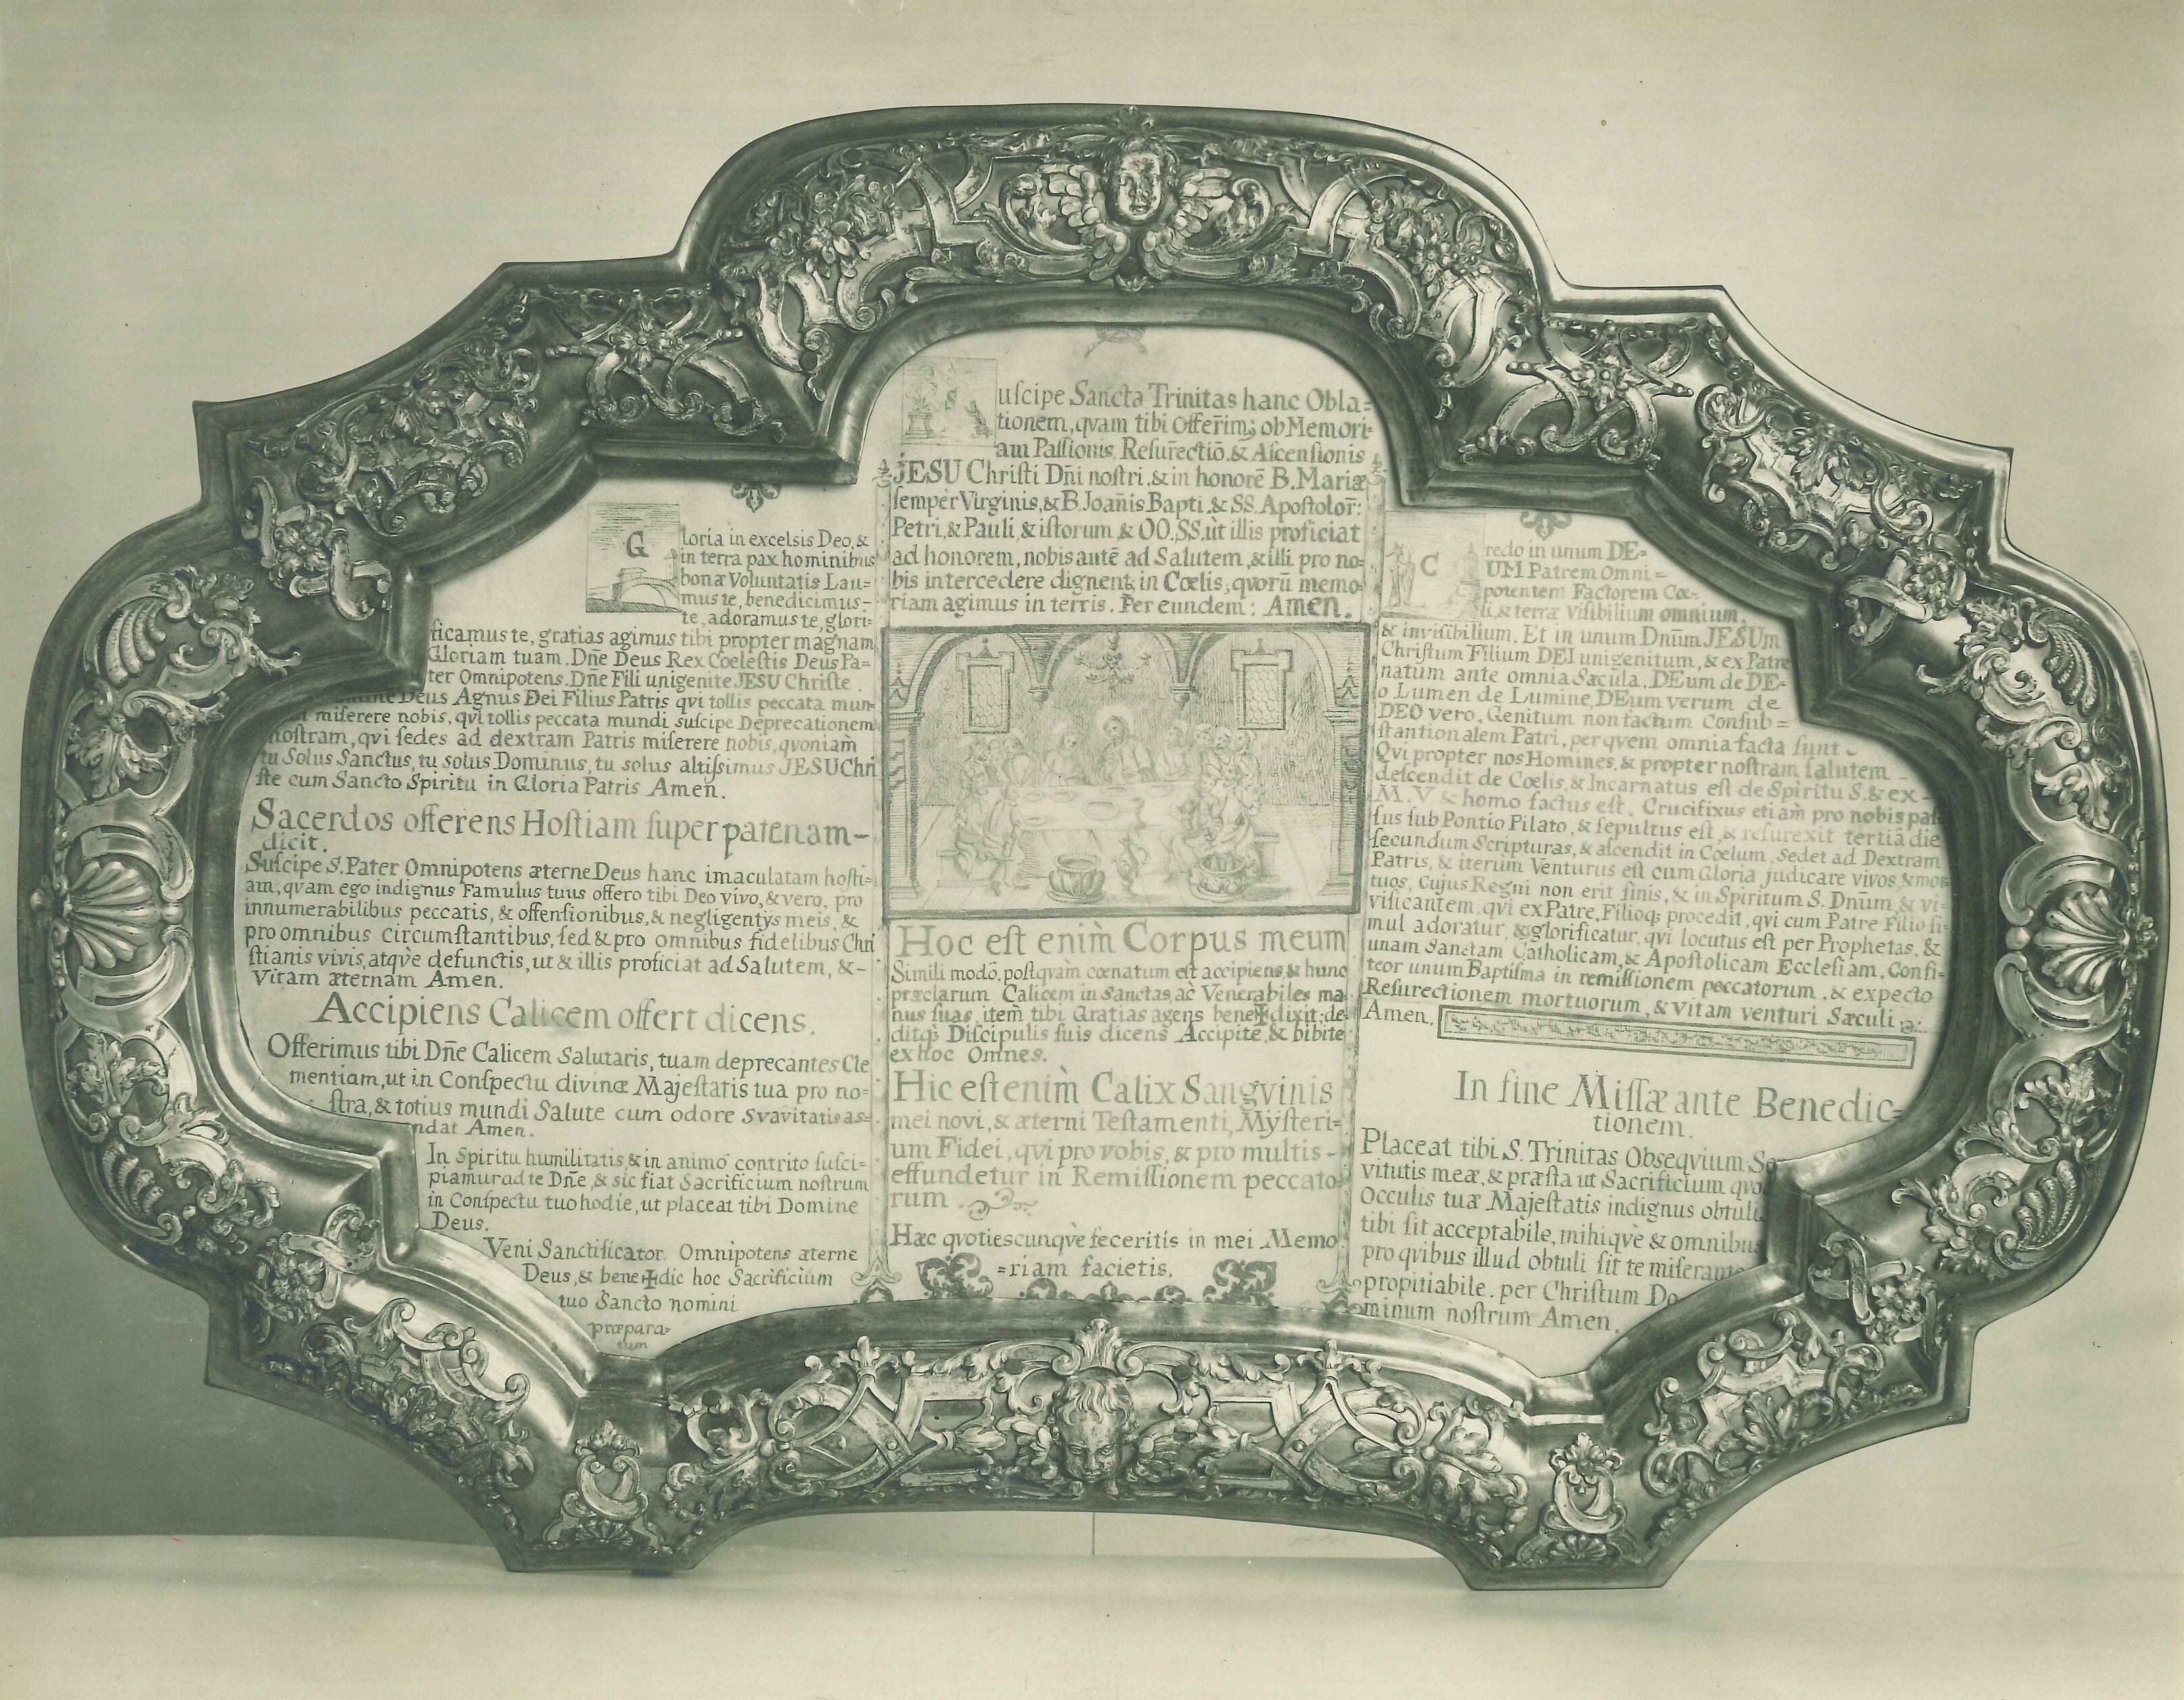 G
loria in excelsis Deo, &
in terra pax hominibus
bonæ Voluntatis Lau=
mus te, benedicimus-
te, adoramus te, glori=
ficamus te, gratias agimus tibi propter magnam
Gloriam tuam. Dn̄e Deus Rex Coelestis Deus Pa=
ter Omnipotens. Dn̄e Fili unigenite JESU Christe.
Deus Agnus Dei Filius Patris qvi tollis peccata mun
miſerere nobis, qvi tollis peccata mundi ſuſcipe Deprecationem
noſtram, qvi ſedes ad dextram Patris miſerere nobis, qvoniam
tu Solus Sanctus, tu solus Dominus, tu solus altiſsimus JESU Chri
ſte cum Sancto Spiritu in Gloria Patris Amen.
Sacerdos offerens Hoſtiam ſuper patenam-
dicit.
Suſcipe S. Pater Omnipotens æterne Deus hanc imaculatam hoſti=
am, qvam ego indignus Famulus tuus offero tibi Deo vivo, & vero, pro
innumerabilibus peccatis, & offenſionibus, & negligentÿs meis, &
pro omnibus circumſtantibus, ſed & pro omnibus fidelibus Chri
ſtianis vivis, atqve defunctis, ut & illis proficiat ad Salutem, &-
Vitam æternam Amen.
Accipiens Calicem offert dicens.
Offerimus tibi Dn̄e Calicem Salutaris, tuam deprecantes Cle
mentiam, ut in Conſpectu divinæ Majeſtatis tua pro no=
ſtra, & totius mundi Salute cum odore Svavitatis as=
ndat Amen.
In Spiritu humilitatis & in animo contrito ſuſci=
piamur ad te Dn̄e, & sic fiat Sacrificium noſtrum
in Conſpectu tuo hodie, ut placeat tibi Domine
Deus.
Veni Sanctificator Omnipotens æterne
Deus, & bene✠dic hoc Sacrificium
tuo Sancto nomini
præpara=
tum
S
uſcipe Sancta Trinitas hanc Obla=
tionem, qvam tibi Offerim9 ob Memori=
am Paſſionis, Reſur̄ectiō. & Aſcenſionis
JESU Chriſti Dn̄i noſtri, & in honorē B. Mariæ
ſemper Virginis, & B. Joan̄is Bapti, & SS. Apoſtolor̄:
Petri, & Pauli, & iſtorum & OO. SS, ut illis proficiat
ad honorem, nobis autē ad Salutem, & illi pro no=
bis intercedere dignent in Cœlis, qvorū memo=
riam agimus in terris. Per eundem: Amen.
Hoc eſt enim̀ Corpus meum
Simili modō, poſtqvàm cœnatum eſt accipiens, & hunc
præclarum Calicem in Sanctas, ac Venerabiles ma=
nus ſuas, item̀ tibi Gratias agens bene✠dixit, de=
ditq; Diſcipulis ſuis dicens Accipite, & bibite
ex hoc Omnes.
Hic eſt enim̀ Calix Sangvinis
mei novi, & æterni Teſtamenti, Mÿſteri=
um Fidei, qvi pro vobis, & pro multis -
effundetur in Remiſſionem peccato=
rum.
Hæc qvotiescunqvè feceritis in mei Memo
=riam facietis.
C
redo in unum DE=
UM Patrem Omni=
potentem Factorem Cœ=
li, & terræ Viſibilium omnium,
& inviſibilium. Et in unum Dnūm JESUm
Chriſtum Filium DEI unigenitum, & ex Patre
natum ante omnia Sæcula. DEum de DE=
o Lumen de Lumine, DEum verum de
DEO vero. Genitum non factum Conſub=
ſtantionalem Patri, per qvem omnia facta ſunt -
Qvi propter nos Homines, & propter noſtram ſalutem -
deſcendit de Cœlis, & Incarnatus eſt de Spiritu S. & ex -
M. V. & homo factus eſt. Crucifixus etiam̀ pro nobis paſ
ſus ſub Pontio Pilato, & ſepultus eſt, & reſurexit tertiâ die
ſecundum Scripturas, & aſcendit in Cœlum, Sedet ad Dextram
Patris, & iterùm Venturus eſt cum Gloria judicare vivos, & mor
tuos, Cujus Regni non erit finis, & in Spiritum S. Dnūm & vi=
vificantem, qvi ex Patre, Filioq; procedit, qvi cum Patre Filio ſi=
mul adoratur, & glorificatur, qvi locutus eſt per Prophetas, &
unam Sanctam Catholicam, & Apoſtolicam Eccleſiam, Confi=
teor unum Baptiſma in remiſſionem peccatorum, & expecto
Reſurectionem mortuorum, & vitam venturi Sæculi
Amen.
In fine Miſſæ ante Benedic=
tionem.
Placeat tibi S. Trinitas Obseqvium Se
vitutis meæ, & præſta ut Sacrificium qvo
Occulis tuæ Majeſtatis indignus obtuli
tibi ſit acceptabile, mihiqvè & omnibus
pro qvibus illud obtuli ſit te miſerante
propitiabile. per Chriſtum Do
minum noſtrum Amen.